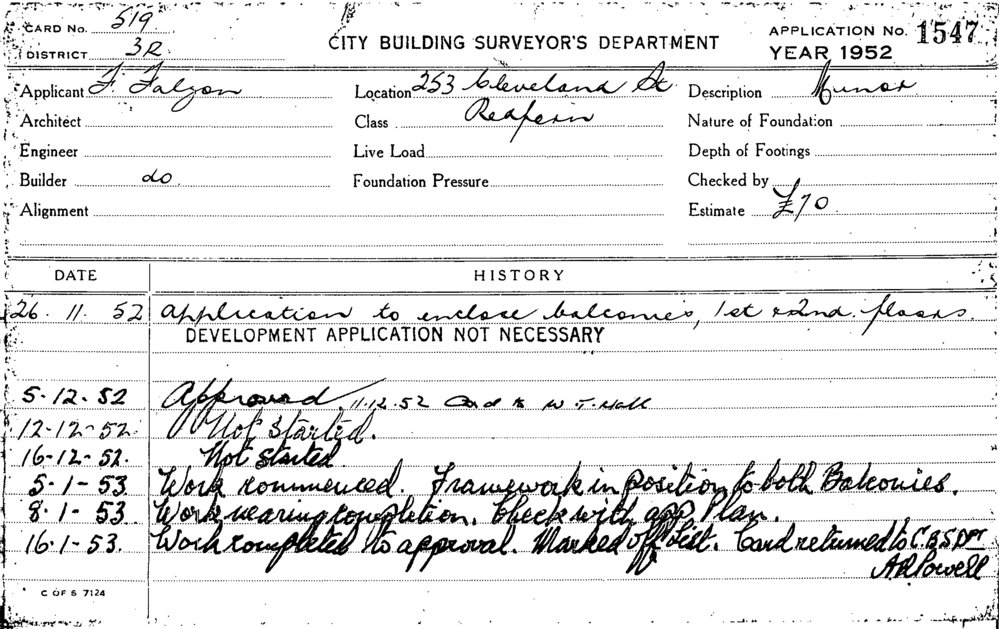 CARD No. 519
DISTRICT 3R
CITY BUILDING SURVEYOR'S DEPARTMENT
APPLICATION No. 1547
YEAR 1952
Applicant F. Falzon Location 253 Cleveland St Description Minor
Architect Class Redfern Nature of Foundation
Engineer Live Load Depth of Footings
Builder do Foundation Pressure Checked by
Alignment Estimate £70
DATE HISTORY
26. 11. 52 Application to enclose balconies, 1st & 2nd floors.
DEVELOPMENT APPLICATION NOT NECESSARY
5-12-52 Approved 11.12.52 Card to W. T. Hall
12-12-52 Not Started.
16-12-52. Not started
5-1-53 Work commenced. Framework in position to both Balconies.
8-1-53 Work nearing completion. Check with app Plan.
16-1-53. Work completed to approval. Marked off List. Card returned to C.B.S. Dpt
A R Powell
C OF S 7124